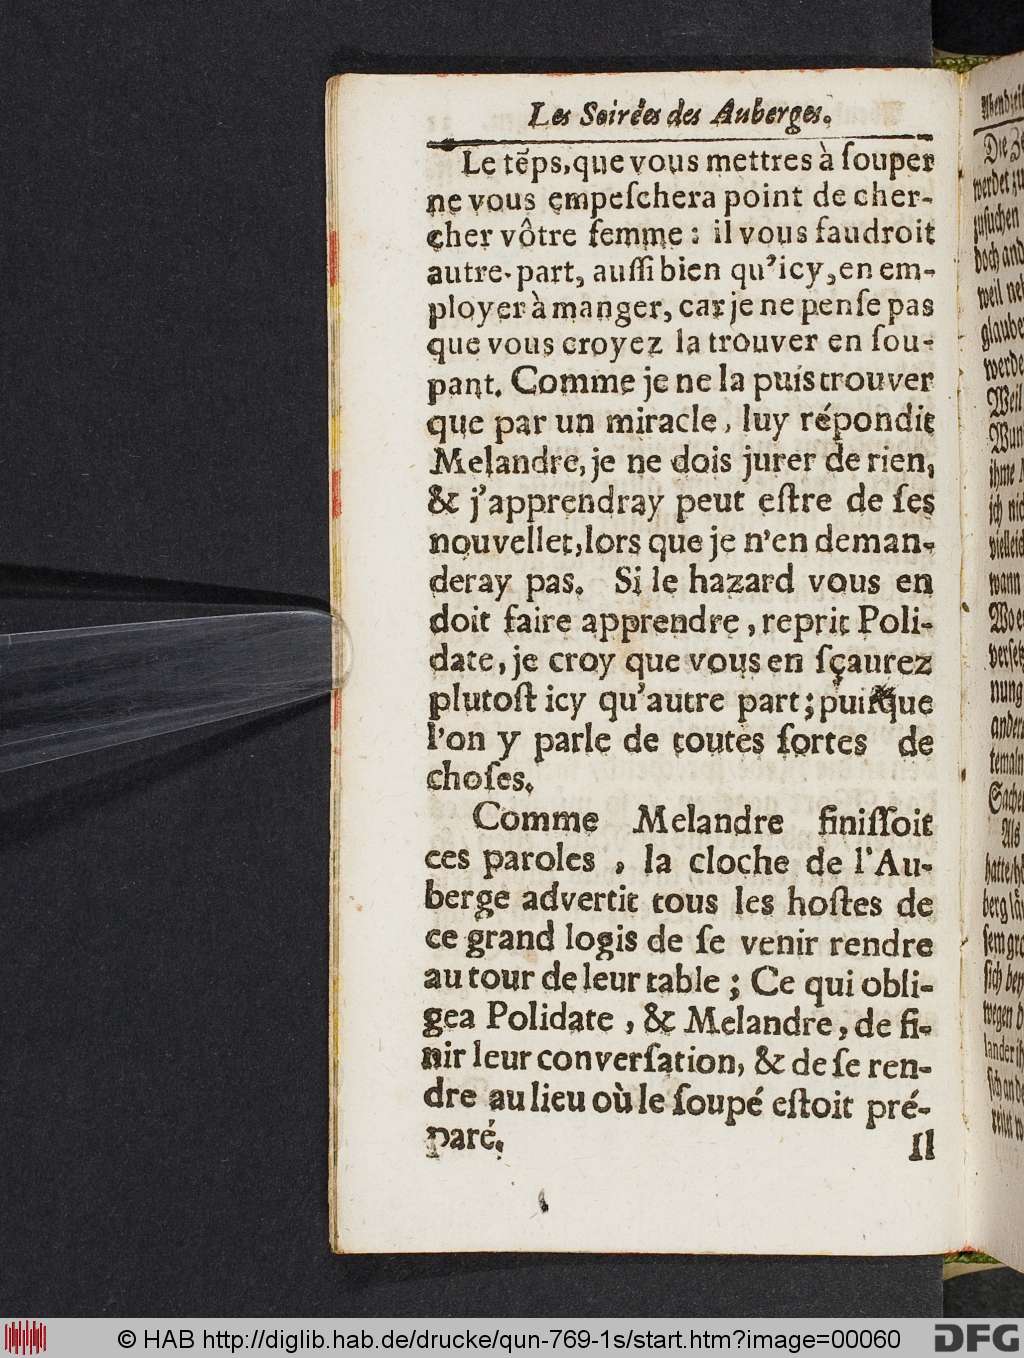 Les Soirées des Auberges.
Le tẽps, que vous mettres à ſouper
ne vous empeſchera point de cher-
cher vôtre femme : il vous faudroit
autre-part, auſſi bien qu'icy, en em-
ployer à manger, car je ne penſe pas
que vous croyez la trouver en ſou-
pant. Comme je ne la puis trouver
que par un miracle, luy répondit
Melandre, je ne dois jurer de rien,
& j'apprendray peut eſtre de ſes
nouvellet, lors que je n'en deman-
deray pas. Si le hazard vous en
doit faire apprendre, reprit Poli-
date, je croy que vous en ſçaurez
plutoſt icy qu'autre part; puiſque
l'on y parle de toutes ſortes de
choſes.
Comme Melandre finiſſoit
ces paroles, la cloche de l'Au-
berge advertit tous les hoſtes de
ce grand logis de ſe venir rendre
au tour de leur table ; Ce qui obli-
gea Polidate, & Melandre, de fi-
nir leur converſation, & de ſe ren-
dre au lieu où le ſoupé eſtoit pré-
paré.
Il
Die
werdet
zuſuchen
doch
weil
glaube
werde
Weil
ihme
ich
wann
nung
Als
hatte
ſich
wegen
© HAB http://diglib.hab.de/drucke/qun-769-1s/start.htm?image=00060
DFG